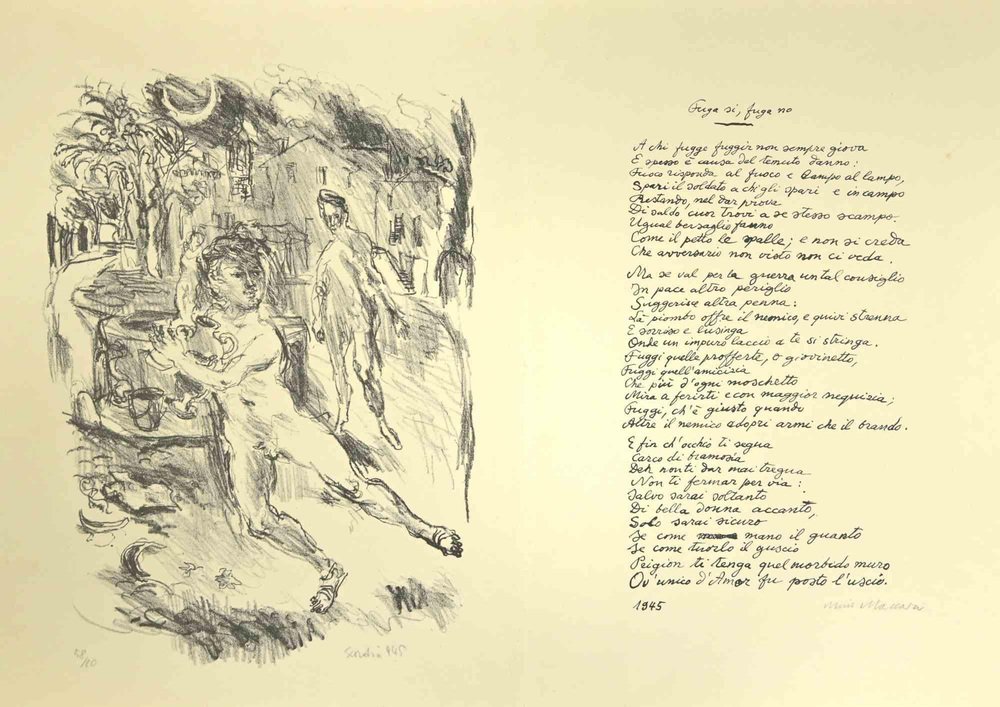 Fuga sì, fuga no
A chi fugge fuggir non sempre giova
E spesso è causa del temuto danno:
Fuoco risponda al fuoco e lampo al lampo,
Spari il soldato a ch'gli spari e in campo
Restando, nel dar prova
Di saldo cuor trovi a se stesso scampo.
Ugual bersaglio fanno
Come il petto le spalle; e non si creda
Che avversario non visto non ci veda.
Ma se val per la guerra un tal consiglio
In pace altro periglio
Suggerisce altra penna:
Là piombo offre il nemico, e quivi strenna
E sorriso e lusinga
Onde un impuro laccio a te si stringa.
Fuggi quelle profferte, o giovinetto,
Fuggi quell'amicizia
Che più d'ogni moschetto
Mira a ferirti e con maggior nequizia;
Fuggi, ch'è giusto quando
Altre il nemico adopri armi che il brando.
E fin ch'occhio ti segua
Carco di bramosia
Deh non ti dar mai tregua
Non ti fermar per via:
Salvo sarai soltanto
Di bella donna accanto,
Solo sarai sicuro
Se come mano il guanto
Se come tuorlo il guscio
Prigion ti tenga quel morbido muro
Ov'unico d'Amor fu posto l'uscio.
1945
Mino Maccari
Scordia 945